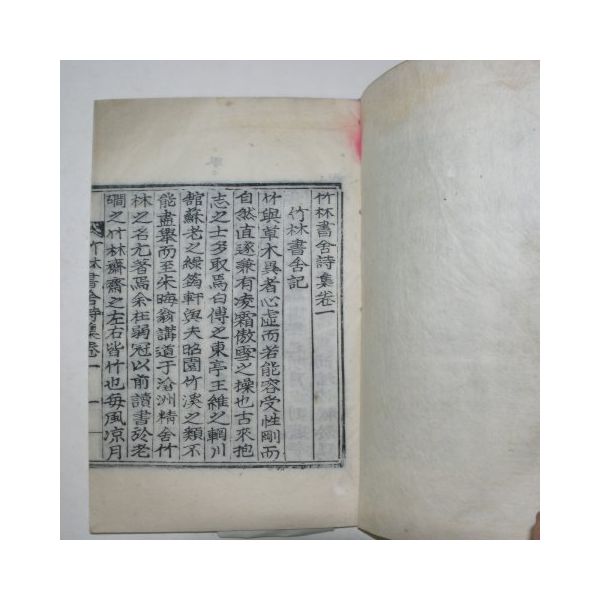 竹林書舍詩集卷一
竹林書舍記
竹與草木異者心虛而若能容受性剛而
自然直遂兼有凌霜傲雪之操也古來抱
志之士多取焉白傅之東亭王維之輞川
舘蘇老之綠筠軒與夫昭園竹溪之類不
能盡舉而至朱晦翁講道于滄洲精舍竹
林之名尤著焉余在弱冠以前讀書於老
磵之竹林齋齋之左右皆竹也每風凉月
竹林書舍詩集卷一